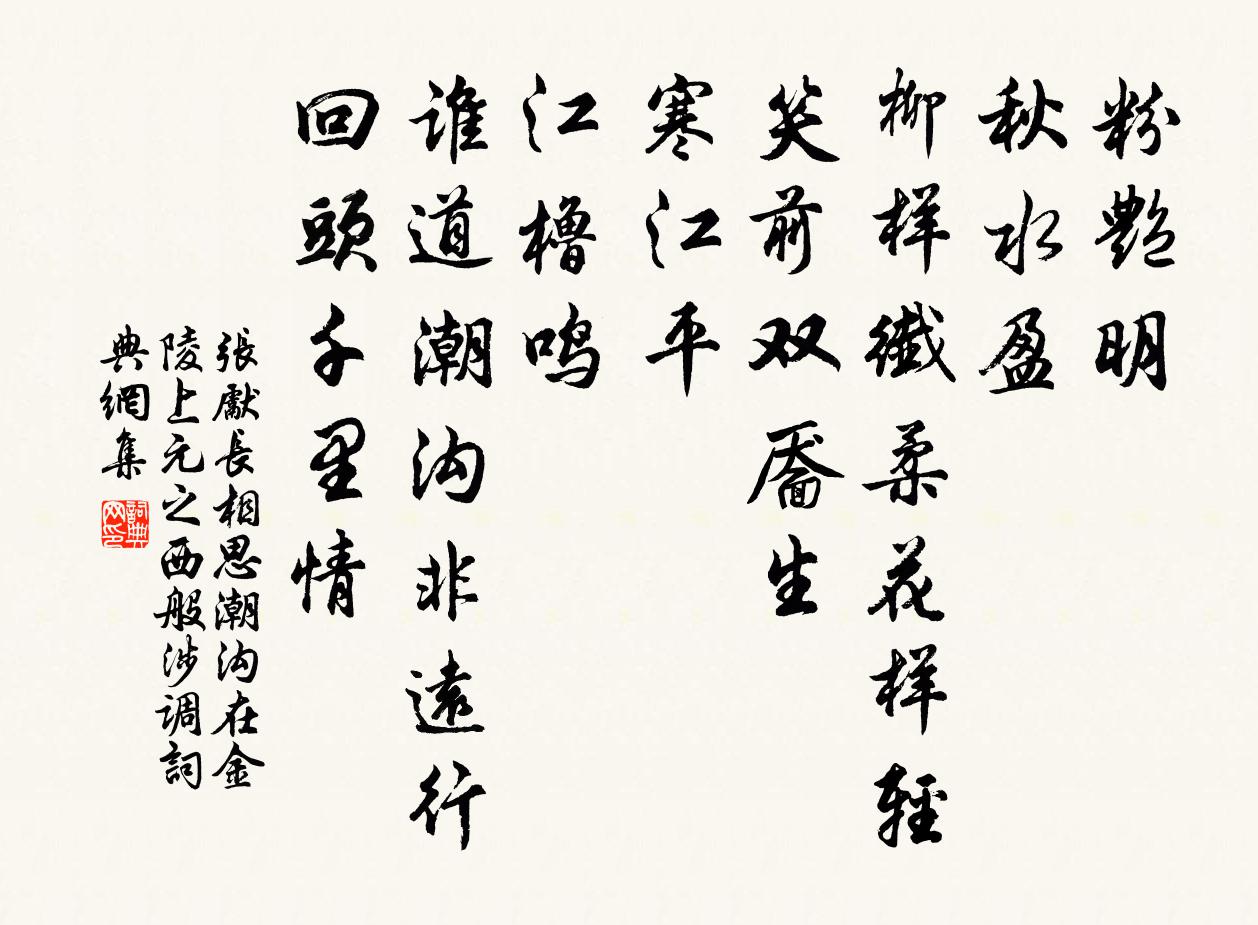 粉艷明
秋水盈
柳样纖柔花样輕
笑前双靥生
寒江平
江櫓鸣
谁道潮沟非遠行
回頭千里情
張獻長相思潮沟在金
陵上元之西般涉调詞
典網集
詞典网印